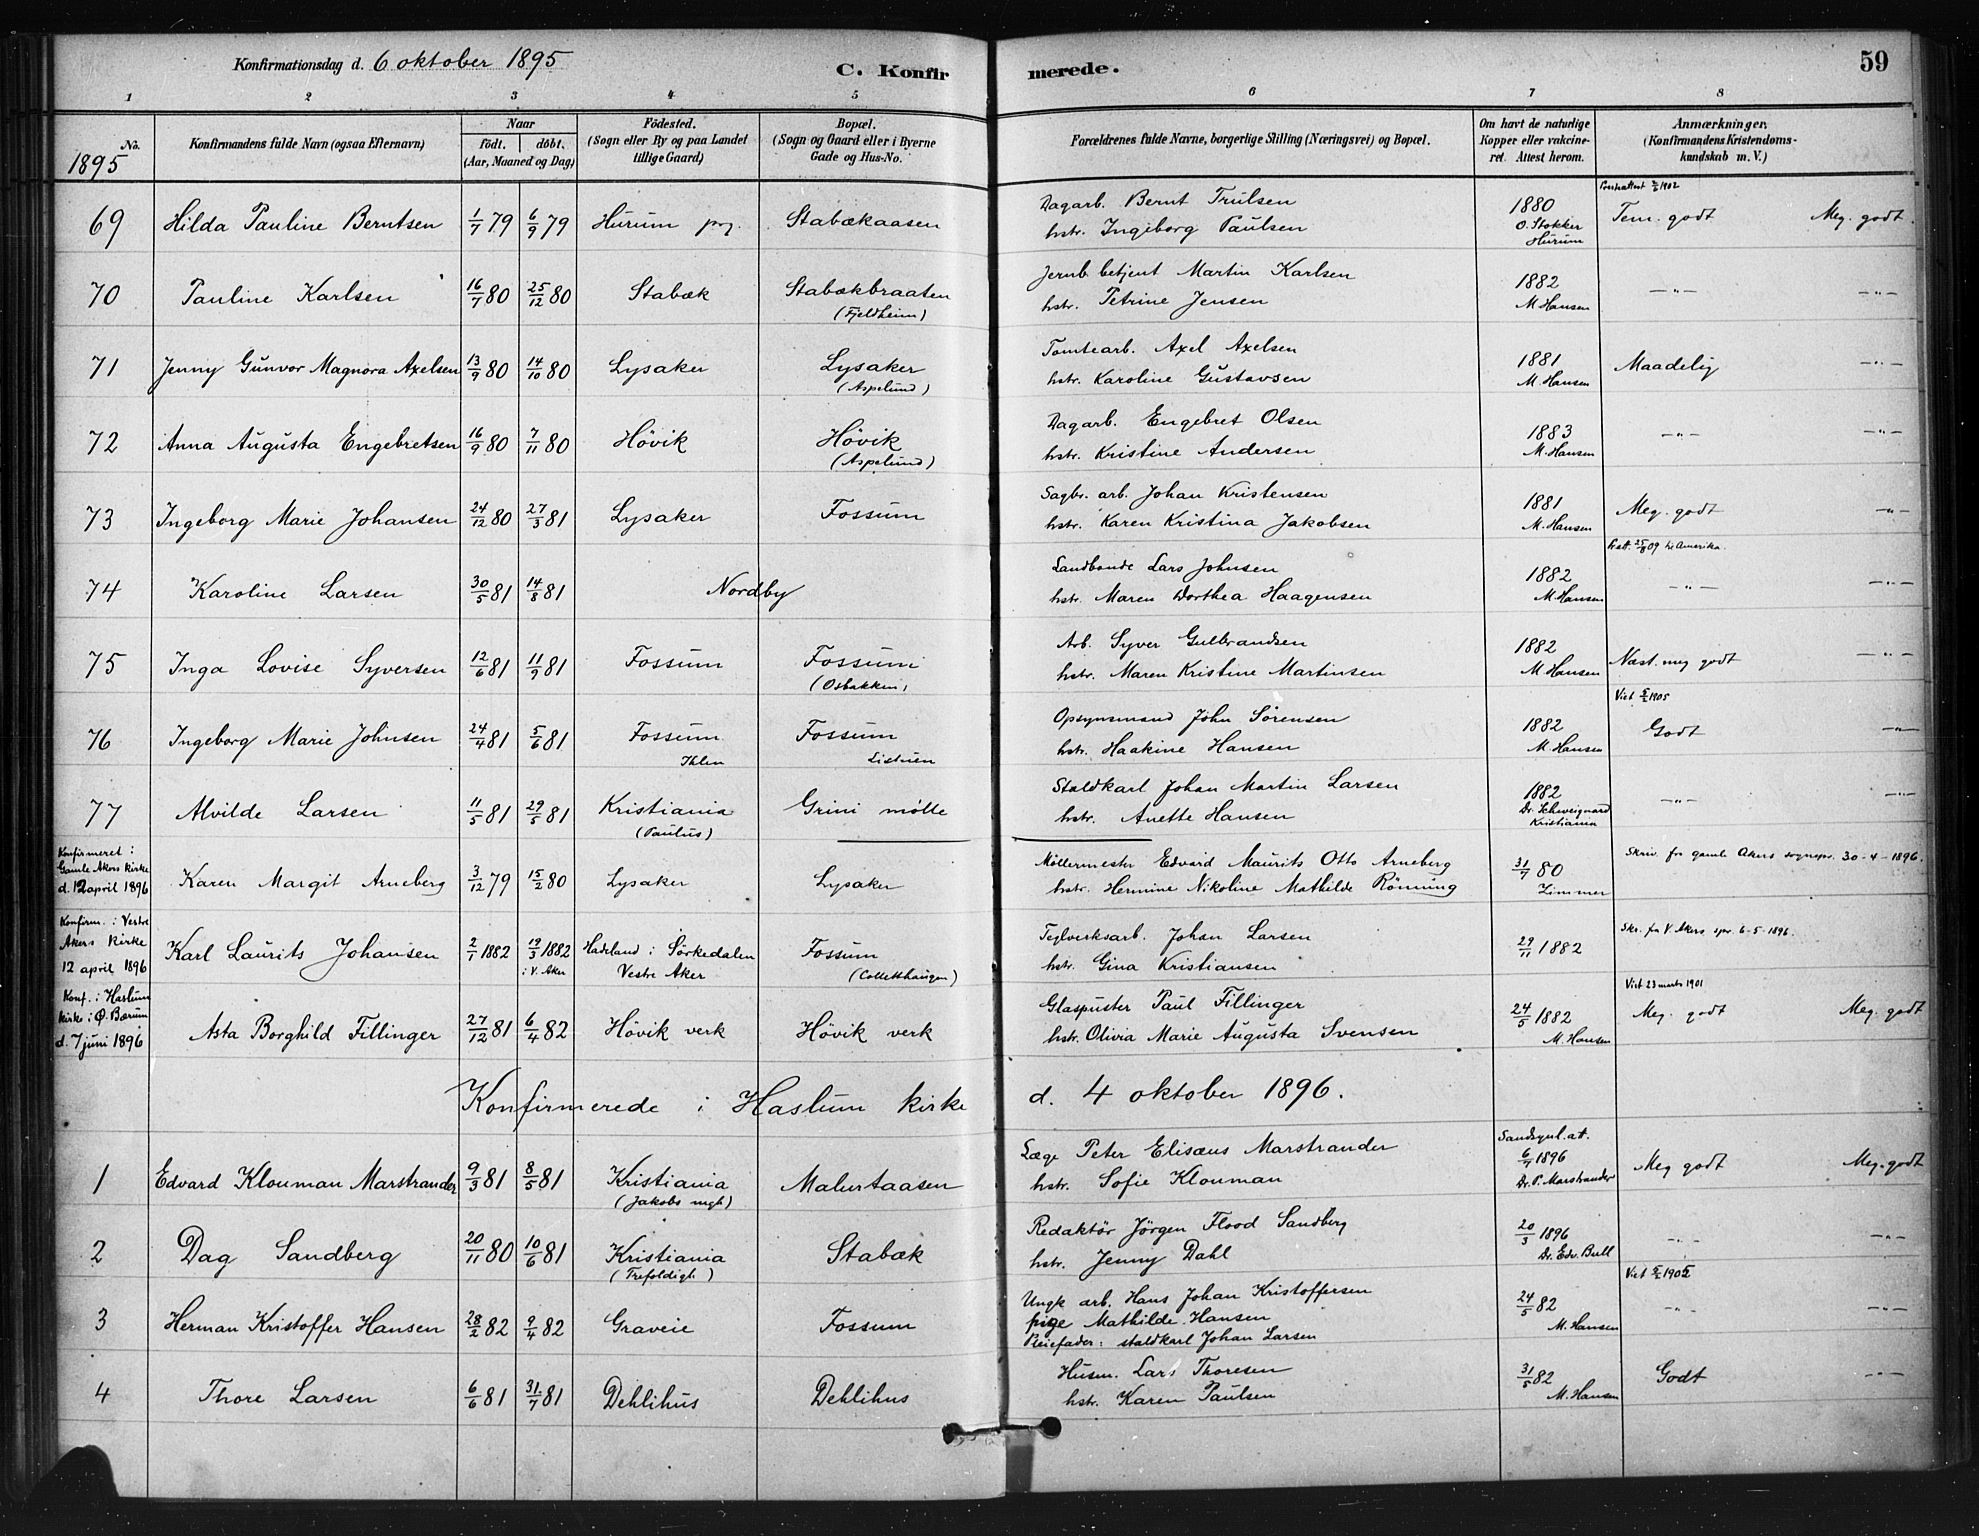 Konfirmationsdag d. 6 oktober 1895
C. Konfirmerede.
59
1 2 3 4 5 6 7 8
No.
1895
Konfirmandens fulde Navn (ogsaa Efternavn)
Naar
födt. döbt.
(Aar, Maaned og Dag)
Födested.
(Sogn eller By og paa Landet
tillige Gaard)
Bopæl.
(Sogn og Gaard eller i Byerne
Gade og Hus-No.
Forældrenes fulde Navne, borgerlige Stilling (Næringsvei) og Bopæl.
Om havt de naturlige
Kopper eller vakcineret. Attest herom.
Anmærkninger.
(Konfirmandens Kristendomskundskab m. V.)
69 Hilda Pauline Berntsen 1/7 79 6/9 79 Hurum prg. Stabækaasen
Dagarb. Bernt Trulsen
hstr. Ingeborg Paulsen
1880
O. Stokker
Hurum
1902
Tem. godt Meg. godt.
70 Pauline Karlsen 16/7 80 25/12 80 Stabæk Stabækbraaten
(Fjeldheim)
Jernb. betjent Martin Karlsen
hstr. Petrine Jensen
1882
M. Hansen
—"— —"—
71 Jenny Gunvor Magnora Axelsen 13/9 80 14/10 80 Lysaker Lysaker
(Aspelund)
Tomtearb. Axel Axelsen
hstr. Karoline Gustavsen
1881
M. Hansen
Maadelig —"—
72 Anna Augusta Engebretsen 16/9 80 7/11 80 Hövik Hövik
(Aspelund)
Dagarb. Engebret Olsen
hstr. Kristine Andersen
1883
M. Hansen
—"— —"—
73 Ingeborg Marie Johansen 24/12 80 27/3 81 Lysaker Fossum
Sagbr. arb. Johan Kristensen
hstr. Karen Kristina Jakobsen
1881
M. Hansen
Meg. godt —"—
74 Karoline Larsen 30/5 81 14/8 81 Nordby
Landbonde Lars Johnsen
hstr. Maren Dorthea Haagensen
1882
M. Hansen
09 til Amerika.
—"— —"—
75 Inga Lovise Syversen 12/6 81 11/9 81 Fossum Fossum
(Osbakken)
Arb. Syver Gulbrandsen
hstr. Maren Kristine Martinsen
1882
M. Hansen
Næst. meg godt —"—
76 Ingeborg Marie Johnsen 24/4 81 5/6 81 Fossum Fossum
Ihlen
Opsynsmand John Sörensen
hstr. Haakine Hansen
1882
M. Hansen
Viet 1905
Godt —"—
77 Alvilde Larsen 11/5 81 29/5 81 Kristiania Grini mölle
(Paulus)
Staldkarl Johan Martin Larsen
hstr. Anette Hansen
1882
Dr. Schweigaard
Kristiania
—"— —"—
Konfirmeret i
Gamle Akers kirke
d. 12 april 1896
Karen Margit Arneberg 3/12 79 15/2 80 Lysaker Lysaker
Möllermester Edvard Maurits Otto Arneberg
hstr. Hermine Nikoline Mathilde Rönning
31/7 80
Zimmer
Skriv. fra gamle Akers sognepr. 30-4-1896.
Konfirm. i Vestre
Akers kirke
12 april 1896
Karl Laurits Johansen 2/1 1882 19/3 1882 Hadeland i Sörkedalen Fossum
i V. Aker Vestre Aker (Colletthaugen)
Teglverksarb. Johan Larsen
hstr. Gina Kristiansen
29/11 1882
Skr. fra V. Akers spr. 6-5-1896.
Konf. i Haslum
kirke i Ø. Bærum
d. 7 juni 1896
Asta Borghild Fillinger 27/12 81 6/4 82 Hövik verk Hövik verk
Glaspuster Paul Fillinger
hstr. Olivia Marie Augusta Svensen
24/5 1882
M. Hansen
Viet 23 marts 1901
Meg. godt Meg. godt
Konfirmerede i Haslum kirke d. 4 oktober 1896.
1 Edvard Klouman Marstrander 9/3 81 8/5 81 Kristiania Malurtaasen
(Jakobs mgh)
Læge Peter Elisæus Marstrander
hstr. Sofie Klouman
Sandsynl. at.
6/7 1896
Dr. P. Marstrander
Meg godt Meg. godt
2 Dag Sandberg 20/11 80 10/6 81 Kristiania Stabæk
(Trefoldigh.)
Redaktör Jörgen Flood Sandberg
hstr. Jenny Dahl
20/3 1896
Dr. Edv. Bull
—"— —"—
3 Herman Kristoffer Hansen 28/2 82 9/4 82 Graveie Fossum
Ungk. arb. Hans Johan Kristoffersen
pige Mathilde Hansen
Pleiefader: staldkarl Johan Larsen
24/5 82
M. Hansen
Viet 1905
—"— —"—
4 Thore Larsen 6/6 81 31/7 81 Dehlihus Dehlihus
Husm. Lars Thoresen
hstr. Karen Paulsen
31/5 82
M. Hansen
Godt —"—